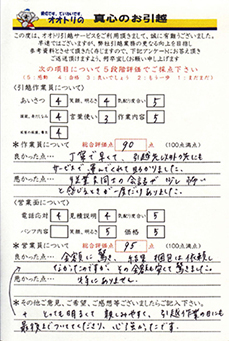 親切で早い、ていねいです。
オオトリの 真心のお引越
この度は、オオトリ引越サービスをご利用頂きまして、誠に有難うございました。
早速ではございますが、弊社引越業務の更なる向上を目指し
参考資料とさせて頂きたく存じますので、下記アンケートにお答え頂き
ご返送頂けますよう、何卒宜しくお願い申し上げます
次の項目について5段階評価でご採点下さい
(5:感動 4:
【引越作業員について】
あいさつ 4 笑顔、明るさ 4 気配り度合 5
4 言葉使い 3 作業内容 5
*作業員について 総合評価点 90 点 (100点満点)
良かった点… 丁寧で早くて、引越先以外の所にも
サービスで運んでくれて助かりました。
悪かった点… 作業員同士の会話が少し多い
と感じるときが一度だけありました。
【営業面について】
電話応対 4 見積説明 4 気配り度合 5
パンフ内容 笑顔、明るさ 5 価格 5
*営業員について 総合評価点 95 点 (100点満点)
良かった点… 金額に驚き、
なかったのですが、その金額も安く驚きました。
悪かった点… 特にありません。
*その他ご意見、ご希望、ご感想等ございましたらご記入下さい。
とっても明るくて親しみやすく、引越作業の日にも